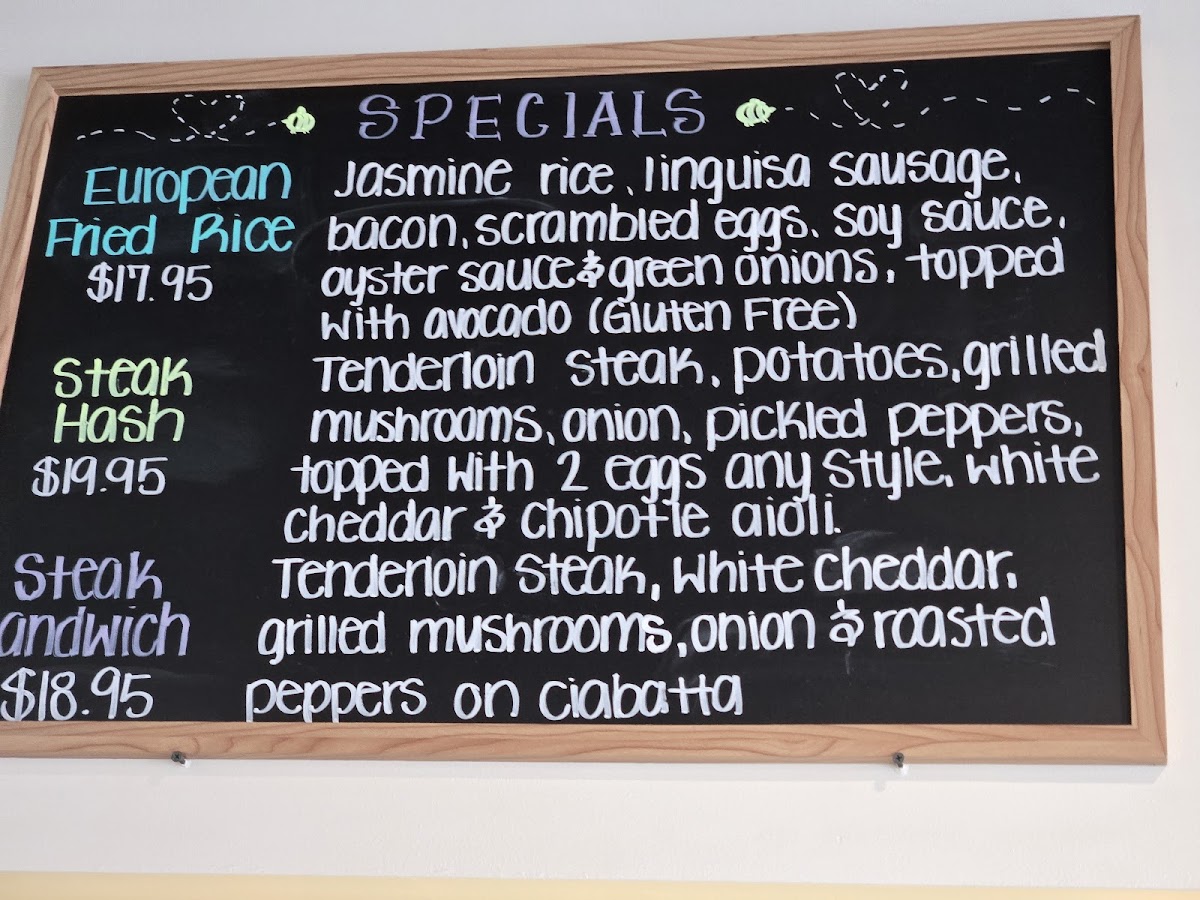 SPECIALS
European
Fried Rice
$17.95
Jasmine rice, linguisa sausage,
bacon, scrambled eggs, soy sauce,
oyster sauce & green onions, topped
with avocado (Gluten Free)
Steak
Hash
$19.95
Tenderloin steak, potatoes, grilled
mushrooms, onion, pickled peppers,
topped with 2 eggs any style, white
cheddar & chipotle aioli.
Steak
andwich
$18.95
Tenderloin steak, white cheddar,
grilled mushrooms, onion & roasted
peppers on ciabatta